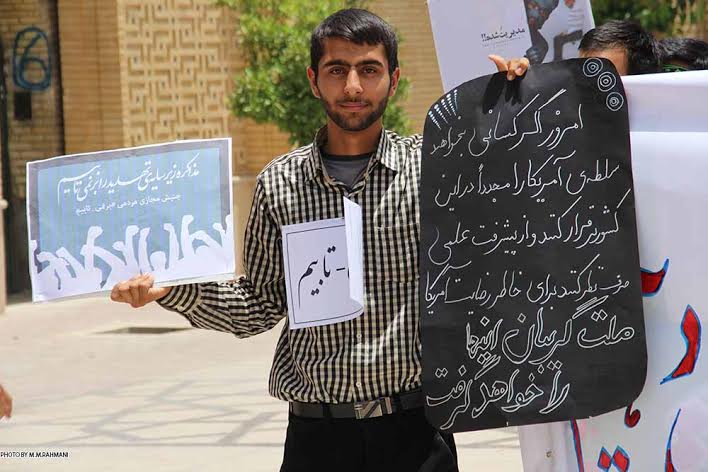 مدیریت شده!!
6
مذاکره زیر سایه‌ی تهدید را برنمی تابیم
جنبش مجازی مردمی #برنمی_تابیم
- تابیم
امروز اگر کسانی بخواهند
سلطه‌ی آمریکا را مجدداً در این
کشور برقرار کنند و از پیشرفت علمی
صرف نظر کنند برای خاطر رضایت آمریکا
ملت گریبان اینها
را خواهد گرفت
PHOTO BY M.M.RAHMANI